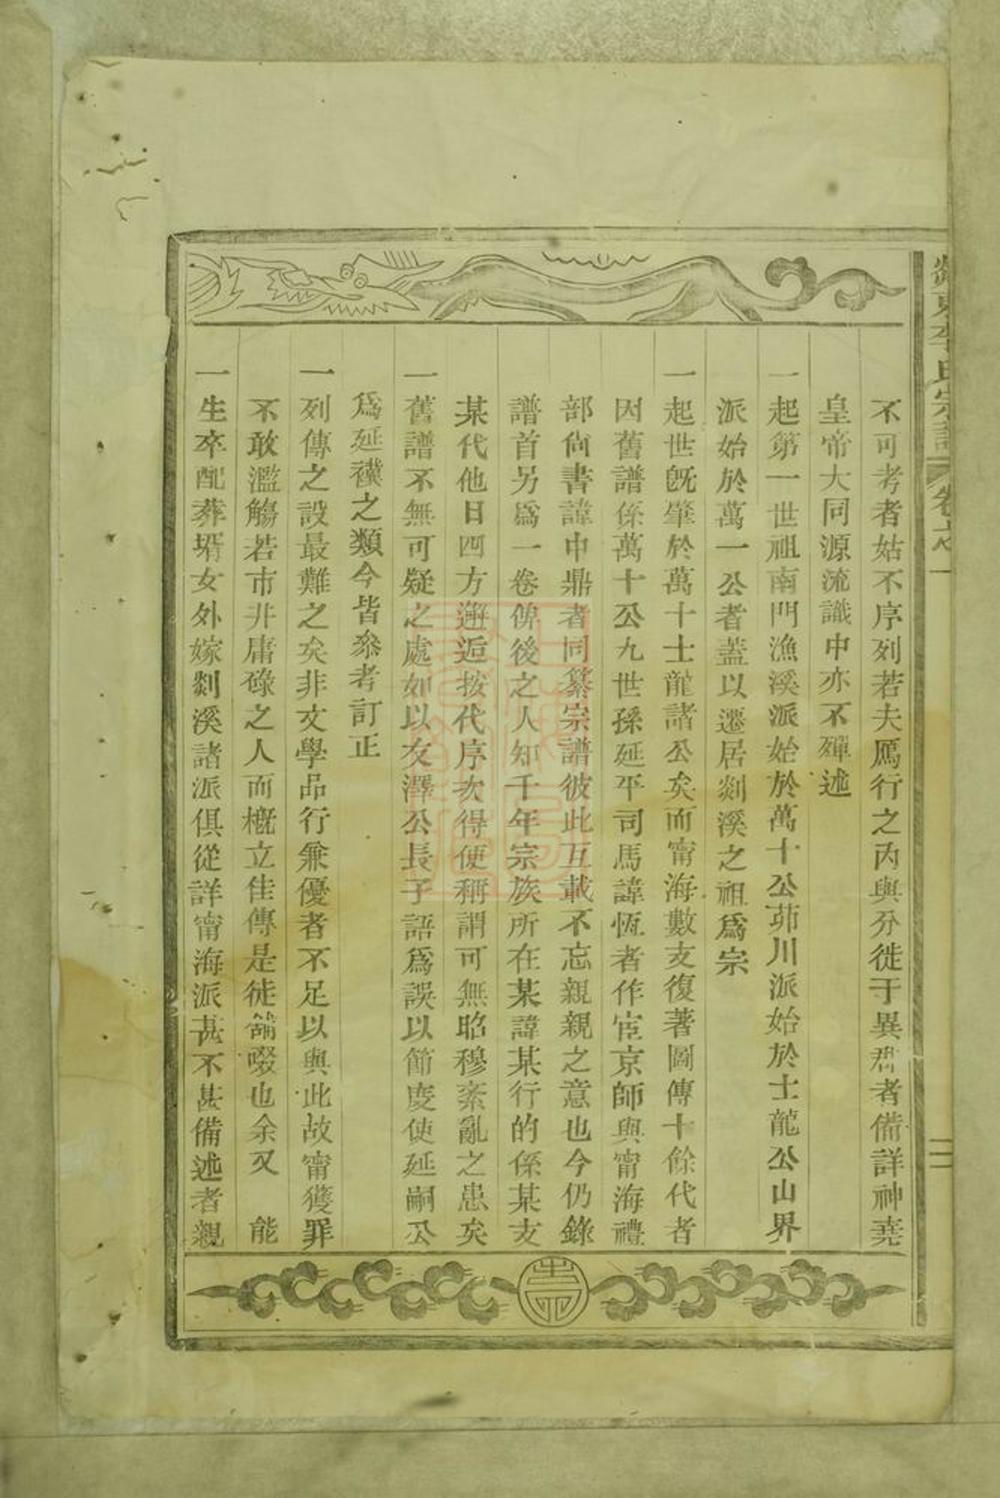 剡東李氏宗譜 卷之一 二
不可考者姑不序列若夫鴈行之內與分徙于異郡者備詳神堯
皇帝大同源流識中亦不殫述
一起第一世祖南門漁溪派始於萬十公茆川派始於士龍公山界
派始於萬一公者蓋以遷居剡溪之祖爲宗
一起世旣肇於萬十士龍諸公矣而甯海數支復著圖傳十餘代者
因舊譜係萬十公九世孫延平司馬諱恆者作宦京師與甯海禮
部尚書諱中鼎者同纂宗譜彼此互載不忘親親之意也今仍錄
譜首另爲一卷俾後之人知千年宗族所在某諱某行的係某支
某代他日四方邂逅按代序次得便稱謂可無昭穆紊亂之患矣
一舊譜不無可疑之處如以友澤公長子語爲誤以節度使延嗣公
爲延襪之類今皆叅考訂正
一列傳之設最難之矣非文學品行兼優者不足以與此故甯獲罪
不敢濫觴若市井庸碌之人而槪立佳傳是徒餔啜也余又 能
一生卒配葬壻女外嫁剡溪諸派俱從詳甯海派甚不甚備述者親